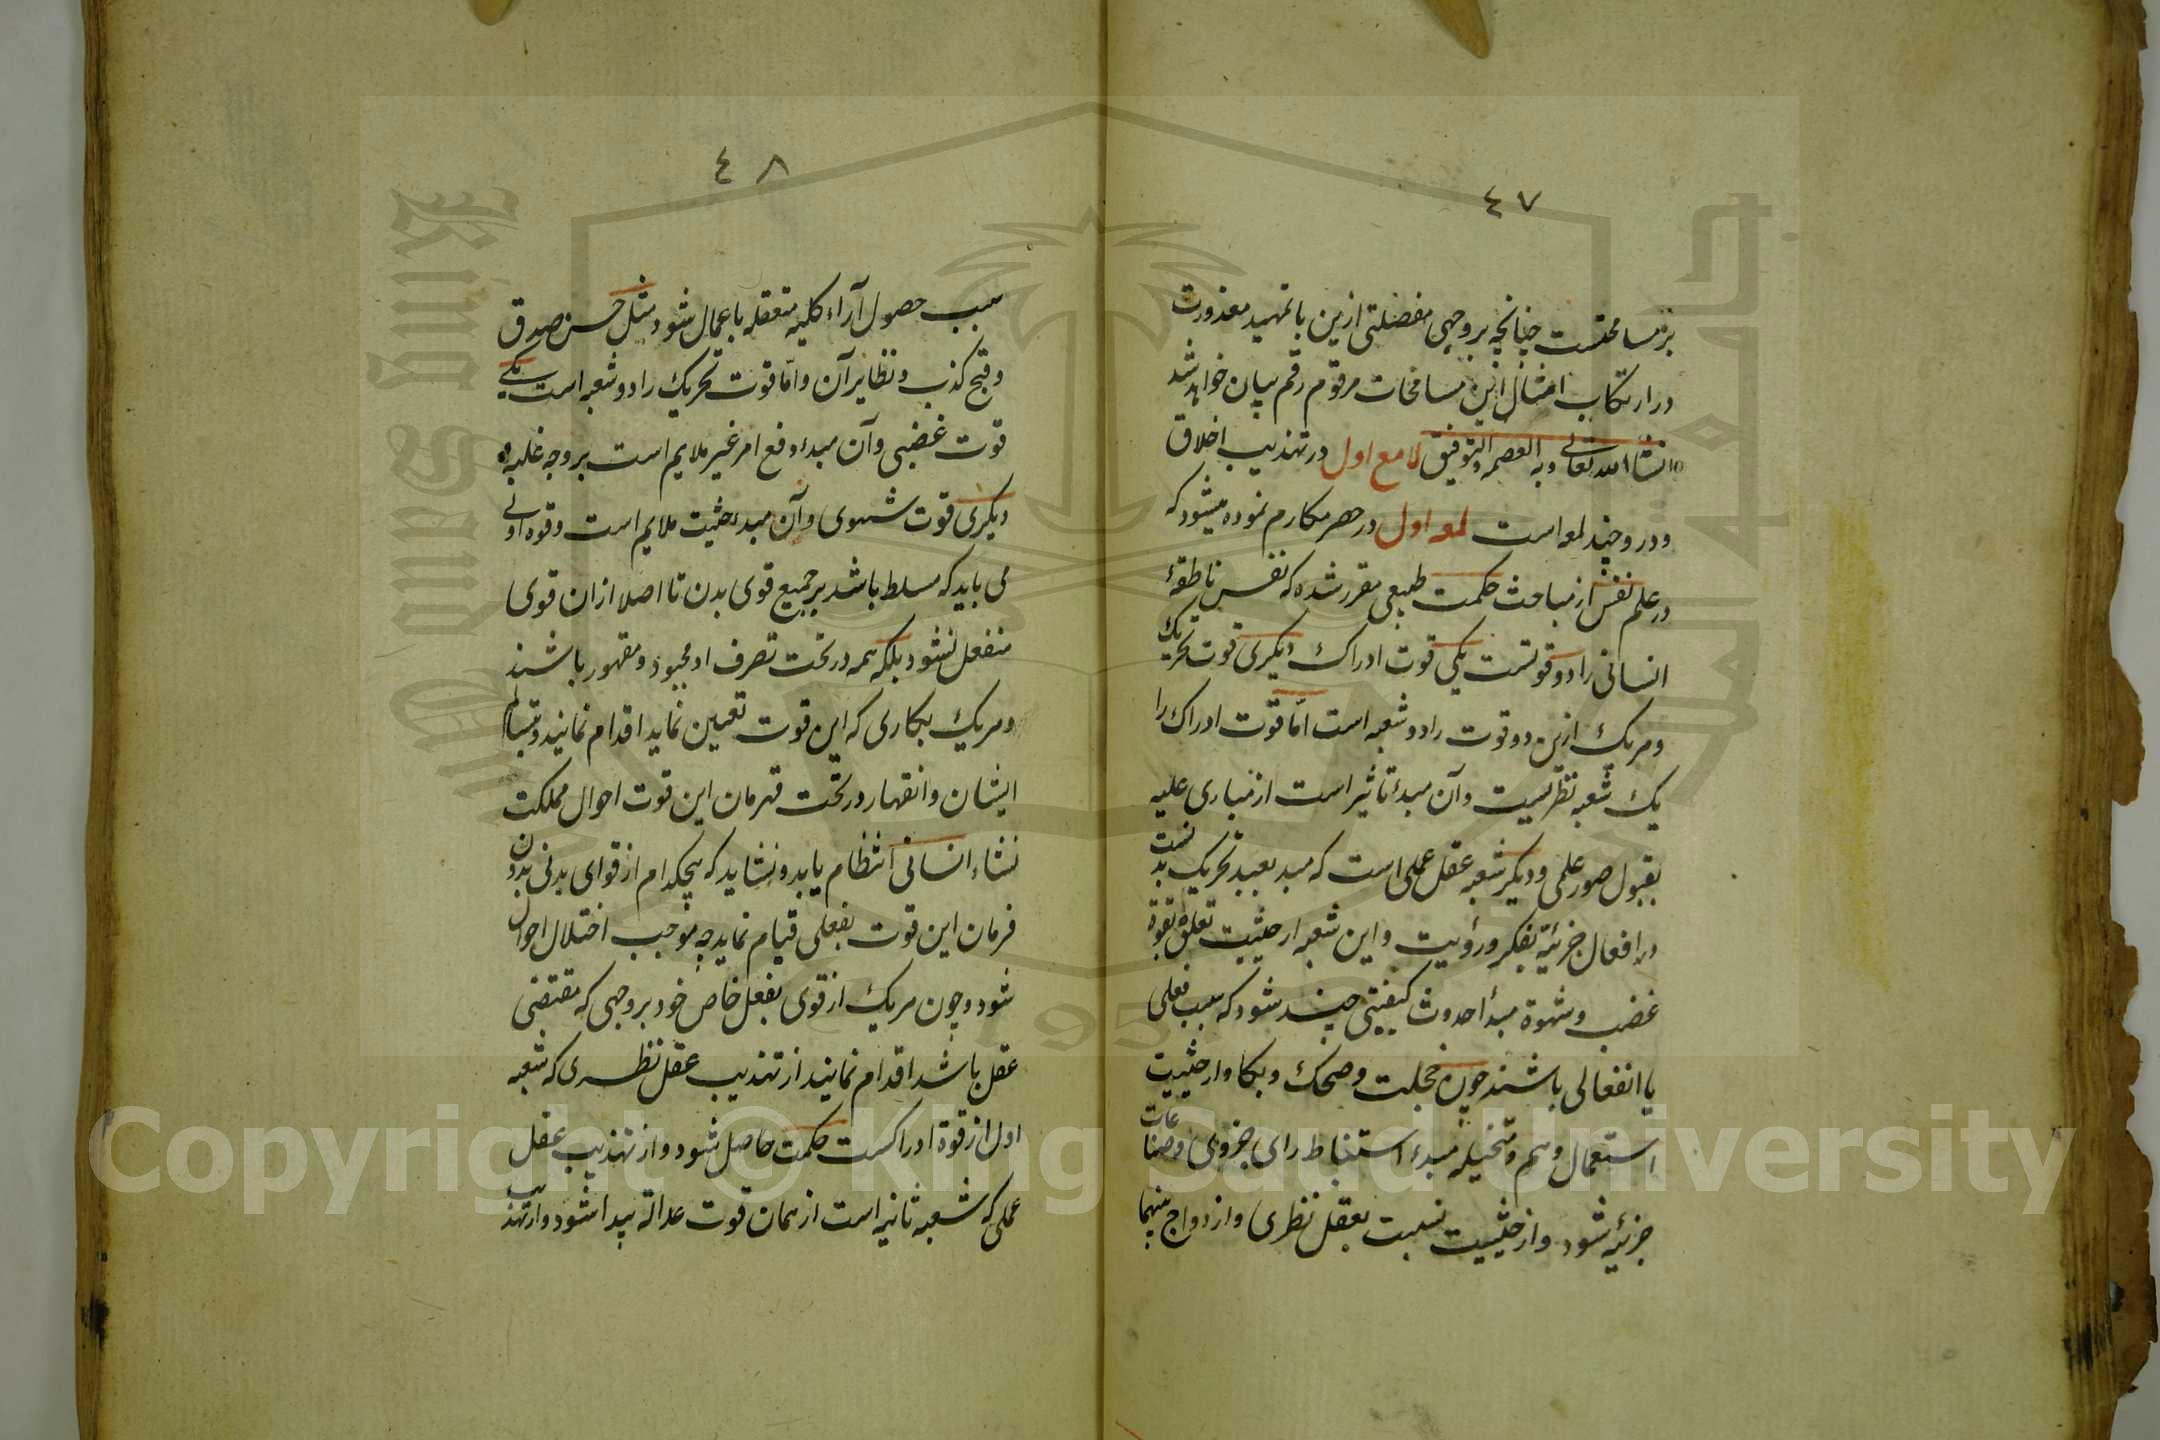 ٤٧
بر مسامحتست چنانچه بر وجهی مفصلتی ازین با تمهید معذورت
در ارتکاب امثال این مسامحات مرقوم رقم بیان خواهد شد
انشا الله تعالی و به العصمه و التوفیق لامع اول در تهذیب اخلاق
و درو چند لمعه است لمعه اول در حصر مکارم نموده میشود که
در علم نفس از مباحث حکمت طبیعی مقرر شده که نفس ناطقۀ
انسانی را دو قوتست یکی قوت ادراک دیکری قوت تحریک
و هر یک ازین دو قوت را دو شعبه است امّا قوّت ادراک را
یک شعبه نظریست و آن مبدأ تاثیر است از مبادی علیه
بقبول صور علمی و دیکر شعبه عقل عملی است که مبد بعید تحریک بدنست
در افعال جزئیّه بفکر و رؤیت و این شعبه از حیثیت تعلق بقوة
غضب و شهوة مبدأ حدوث کیفیتی چند شود که سبب فعلی
یا انفعالی باشند چون خجلت و ضحک و بکا و از حیثیت
استعمال وهم و متخیله مبدء استنباط رای جزوی و صناعات
جزئیه شود و از حیثیت نسبت بعقل نظری و ازدواج بینهما
٤٨
سبب حصول آراء کلیه متعقله باعمال شود مثل حسن صدق
و قبح کذب و نظایر آن و امّا قوت تحریک را دو شعبه است یکی
قوت غضبی و آن مبدء دفع امر غیر ملایم است بر وجه غلبه و
دیکری قوت شهوی و آن مبدء جلب ملایم است و قوه اولی
می باید که مسلط باشد بر جمیع قوی بدن تا اصلا ازان قوی
منفعل نشود بلکه همه در تحت تصرف او مجبور و مقهور باشند
و هر یک بکاری که این قوت تعیین نماید اقدام نمایند و تسالم
ایشان و انقهار در تحت قهرمان این قوت احوال مملکت
نشاء انسانی انتظام یابد و نشاید که هیچکدام از قوای بدنی بدون
فرمان این قوت بفعلی قیام نماید چه موجب اختلال احوال
شود و چون هر یک از قوی بفعل خاص خود بر وجهی که مقتضی
عقل باشد اقدام نمایند از تهذیب عقل نظری که شعبه
اول از قوة ادراکست حکمت حاصل شود و از تهذیب عقل
عملی که شعبه ثانیه است از همان قوت عدالة پیدا شود و از تهذیب
Copyright © King Saud University